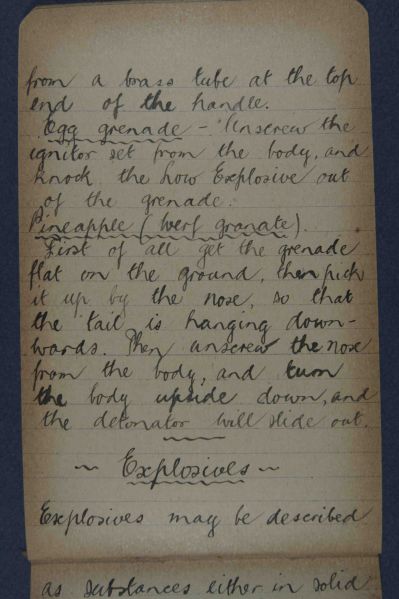 from a brass tube at the top
end of the handle.
Egg grenade - Unscrew the
ignitor set from the body, and
knock the how Explosive out
of the grenade.
Pineapple (Werf granate).
First of all get the grenade
flat on the ground, then pick
it up by the nose, so that
the tail is hanging down-
wards. Then unscrew the nose
from the body, and turn
the body upside down, and
the detonator will slide out.
~ Explosives ~
Explosives may be described
as substances either in solid